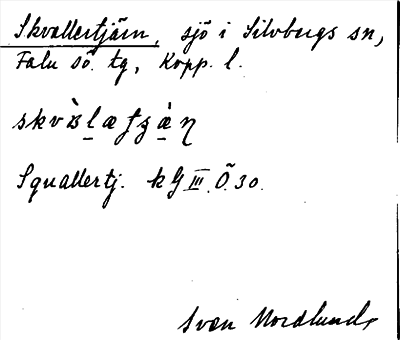 Skvallertjärn, sjö i Silvbergs sn,
Falu sö. tg, Kopp. l.
Squallertj. kG III Ö 30.
Sven Nordlund